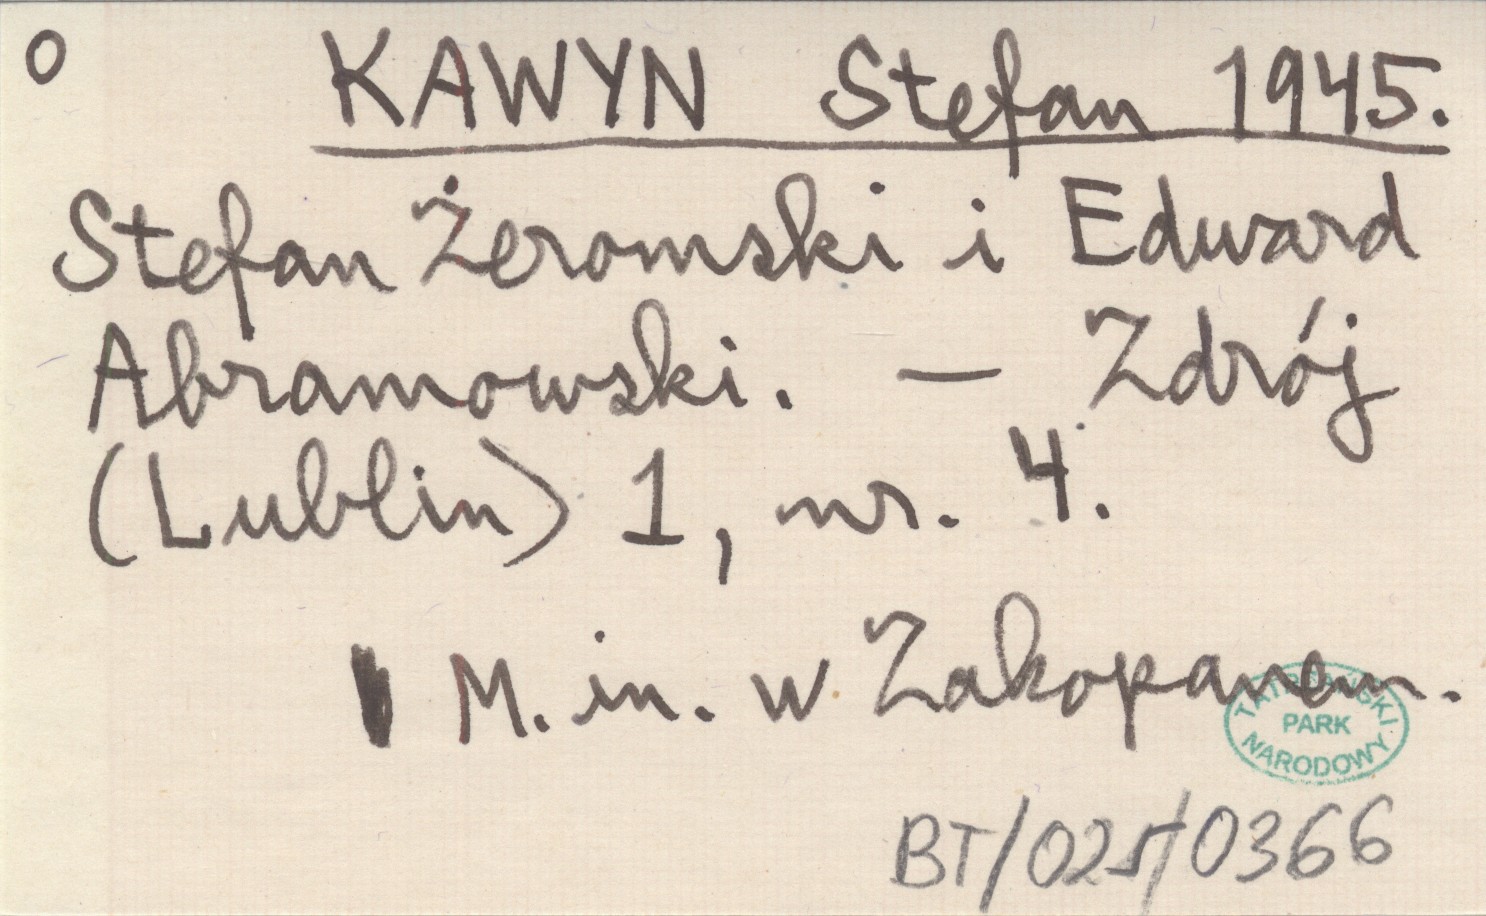 O KAWYN Stefan 1945.
Stefan Żeromski i Edward
Abramowski. — Zdrój
(Lublin) 1, nr. 4.
M. in. w Zakopanem.
TATRZAŃSKI
PARK
NARODOWY
BT/025/0366